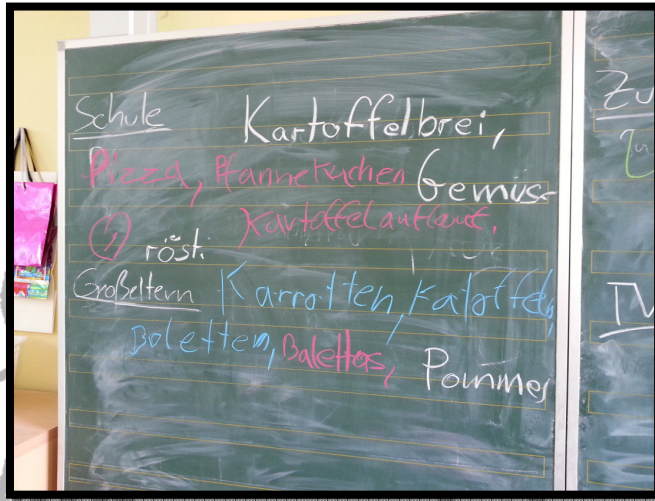 Schule Kartoffelbrei,
Pizza, Pfannekuchen Gemüse-
Kartoffelauflauf,
rösti
Großeltern Karrotten, Kaloffeln,
Boletten, Balettos, Pommes
Zu
TV